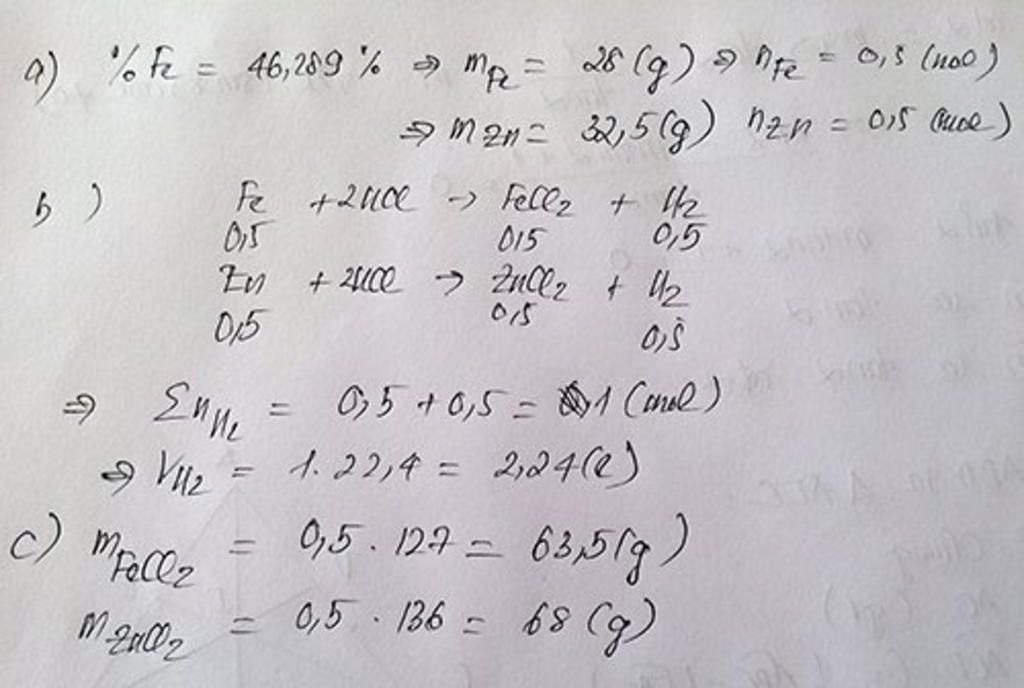 a) % Fe = 46,289 % ⇒ mFe = 28 (g) ⇒ nFe = 0,5 (mol)
⇒ mZn = 32,5 (g) nZn = 0,5 (mol)
b) Fe + 2HCl → FeCl2 + H2
0,5 0,5 0,5
Zn + 2HCl → ZnCl2 + H2
0,5 0,5 0,5
⇒ ΣnH2 = 0,5 + 0,5 = 1 (mol)
⇒ VH2 = 1. 22,4 = 2,24 (l)
c) mFeCl2 = 0,5 . 127 = 63,5 (g)
mZnCl2 = 0,5 . 136 = 68 (g)